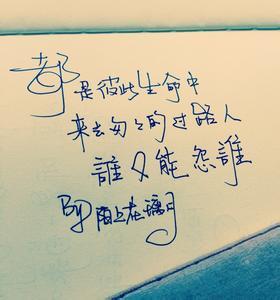 都是彼此生命中
来去匆匆的过路人
誰又能怨誰
By 陌上在